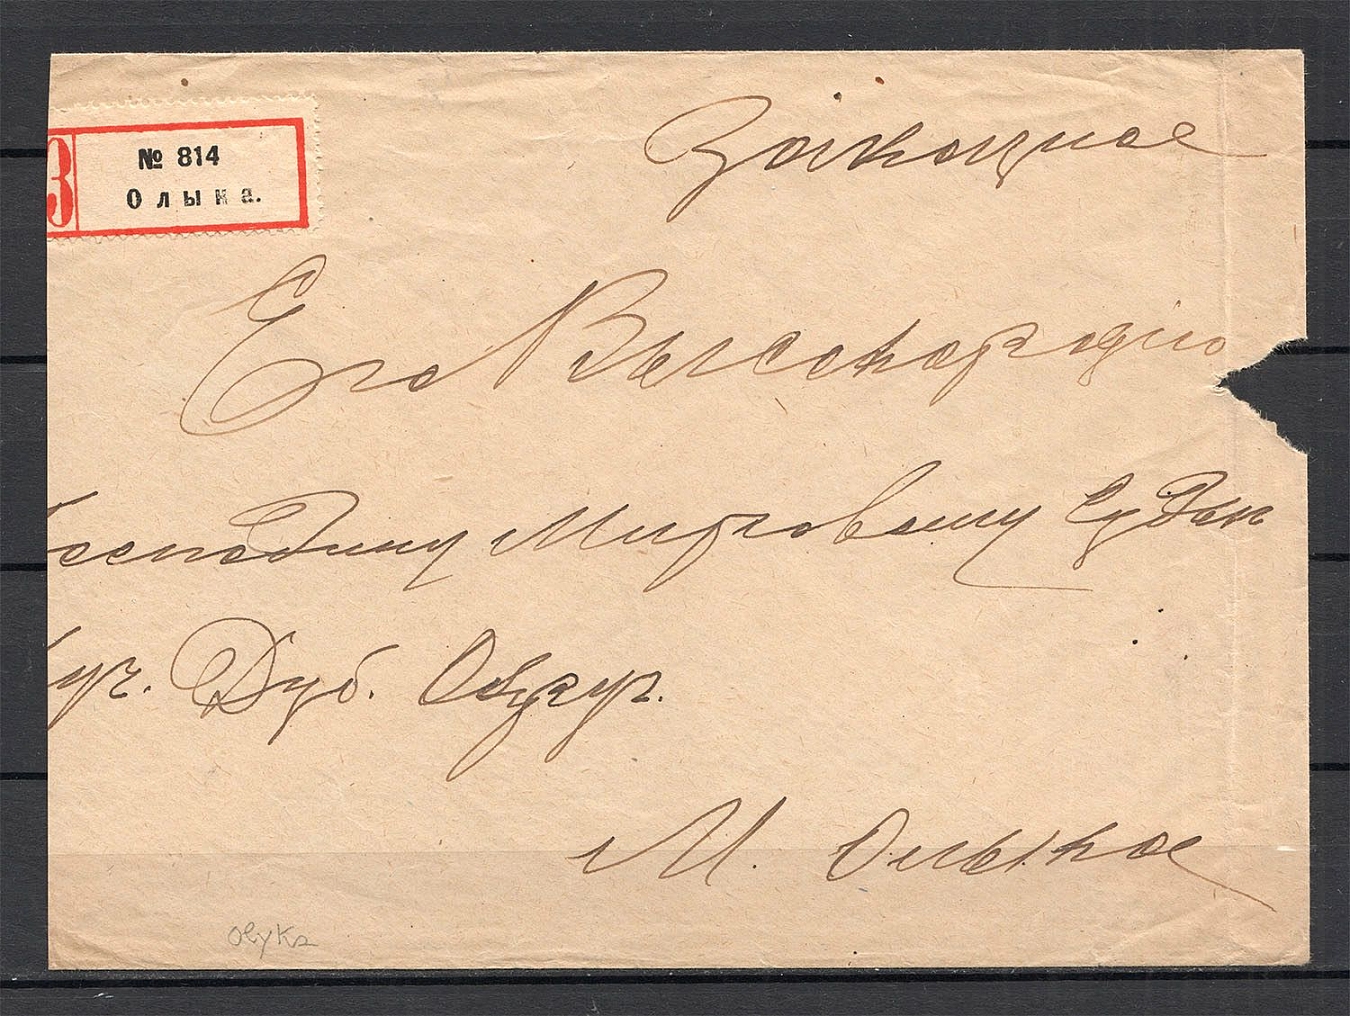 З
№ 814
Олыка.
Заказное
Его Высокородію
Господину Мировому Судьи
уч. Дуб. Округ.
М. Олыка
Olyka